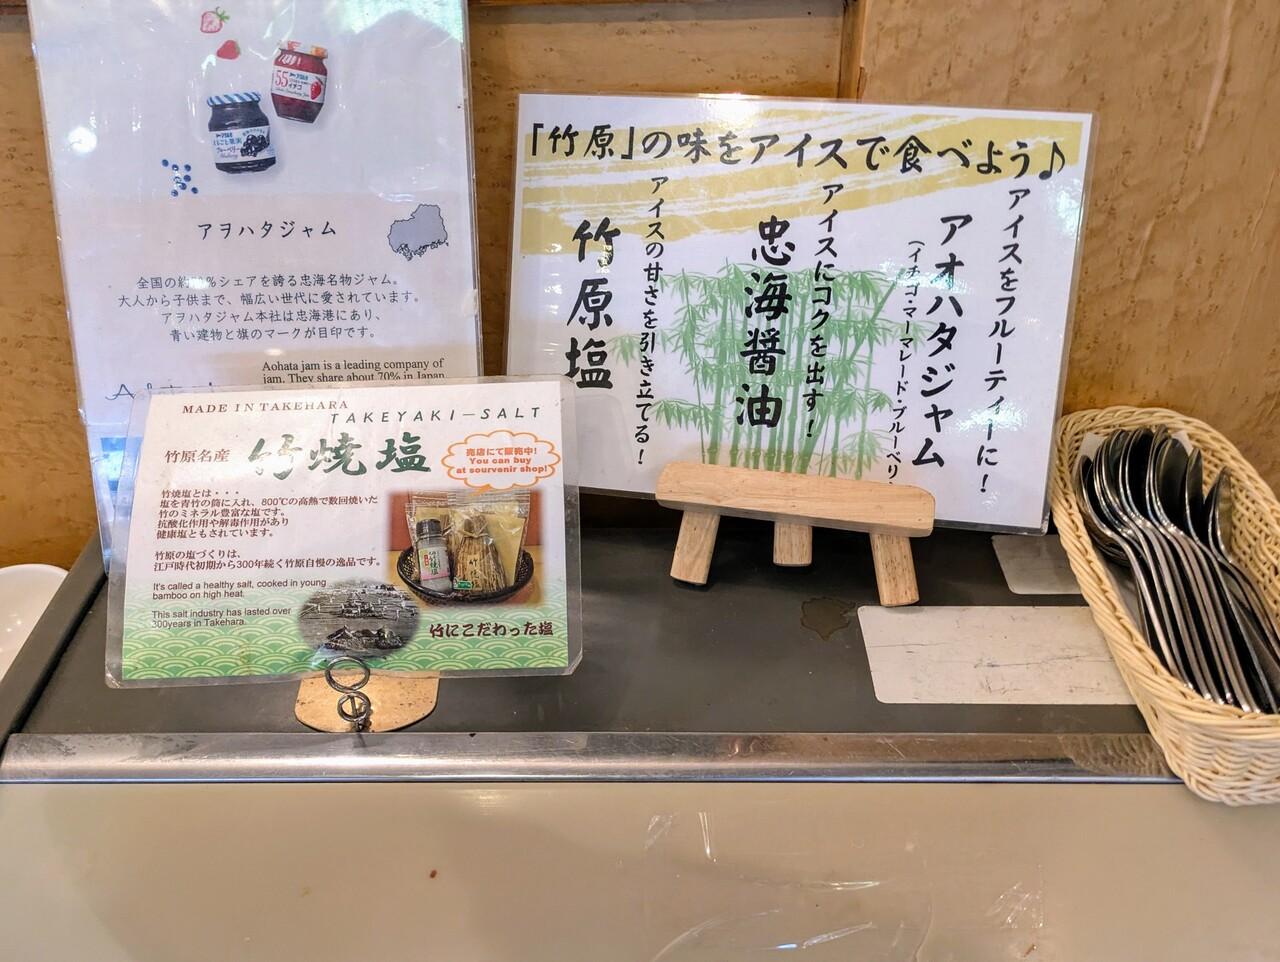 アヲハタジャム
全国の約 %シェアを誇る忠海名物ジャム。
大人から子供まで、幅広い世代に愛されています。
アヲハタジャム本社は忠海港にあり、
青い建物と旗のマークが目印です。
Aohata jam is a leading company of
jam. They share about 70% in Japan
55
イチゴ
まるごと果実
ブルーベリー
MADE IN TAKEHARA
TAKEYAKI-SALT
竹原名産
竹焼塩
売店にて販売中!
You can buy
at sourvenir shop!
竹焼塩とは・・・
塩を青竹の筒に入れ、800℃の高熱で数回焼いた
竹のミネラル豊富な塩です。
抗酸化作用や解毒作用があり
健康塩ともされています。
竹原の塩づくりは、
江戸時代初期から300年続く竹原自慢の逸品です。
It's called a healthy salt, cooked in young
bamboo on high heat.
This salt industry has lasted over
300years in Takehara.
竹にこだわった塩
「竹原」の味をアイスで食べよう♪
アイスをフルーティーに!
アオハタジャム
(イチゴ・マーマレード・ブルーベリ
アイスにコクを出す!
忠海醤油
アイスの甘さを引き立てる!
竹原塩